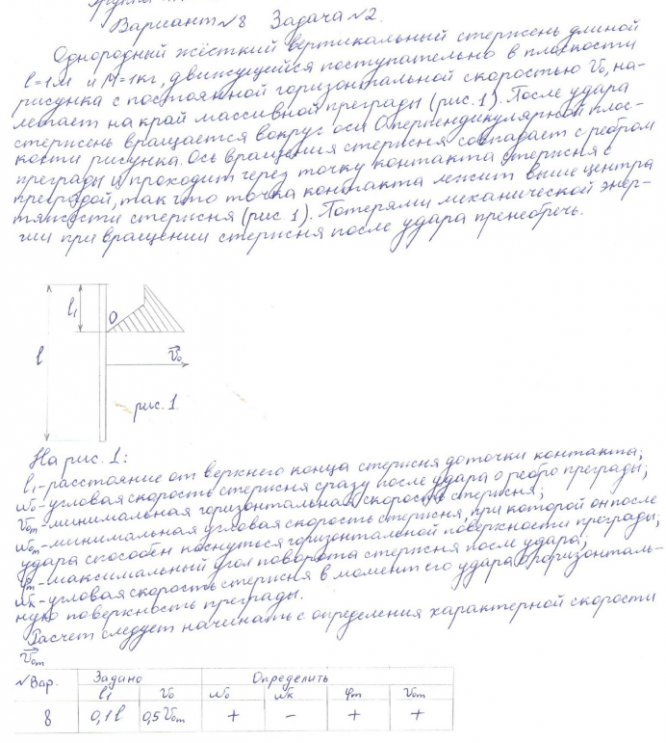 Вариант №8 Задача №2.
Однородный жёсткий вертикальный стержень длиной
l=1м и M=1кг, движущийся поступательно в плоскости
рисунка с постоянной горизонтальной скоростью V₀, на-
летает на край массивной преграды (рис. 1). После удара
стержень вращается вокруг оси О перпендикулярной плос-
кости рисунка. Ось вращения стержня совпадает с ребром
преграды и проходит через точку контакта стержня с
преградой, так что точка контакта лежит выше центра
тяжести стержня (рис. 1). Потерями механической энер-
гии при вращении стержня после удара пренебречь.
l₁
O
l
V₀
рис. 1
На рис. 1:
l₁ - расстояние от верхнего конца стержня до точки контакта;
ω₀ - угловая скорость стержня сразу после удара о ребро преграды;
V₀m - минимальная горизонтальная скорость стержня;
ω₀m - минимальная угловая скорость стержня, при которой он после
удара способен коснуться горизонтальной поверхности преграды;
φm - максимальный угол поворота стержня после удара;
ωк - угловая скорость стержня в момент его удара о горизонталь-
ную поверхность преграды.
Расчет следует начинать с определения характерной скорости
V₀m
№ Вар. Задано Определить
l₁ V₀ ω₀ ωк φm V₀m
8 0,1l 0,5V₀m + - + +